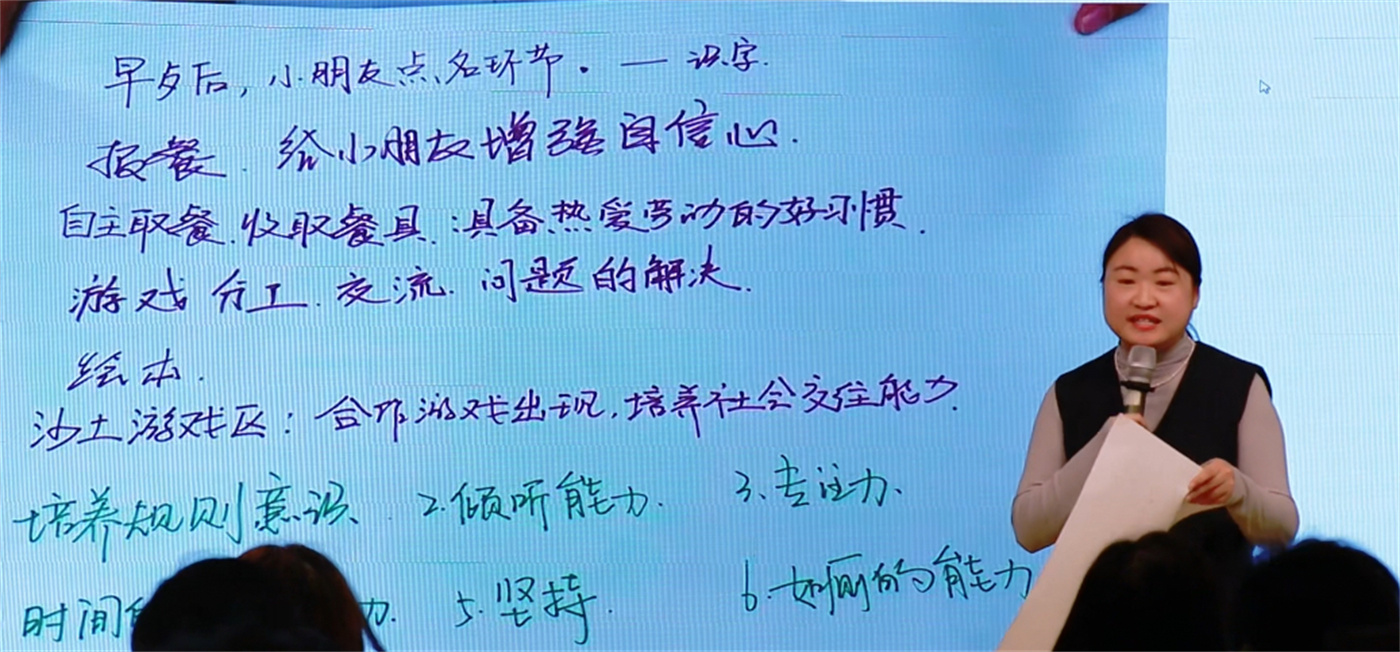 早歺后，小朋友点名环节．— 识字．
报餐．给小朋友增强自信心．
自主取餐．收取餐具．：具备热爱劳动的好习惯．
游戏 分工．交流．问题的解决．
绘本．
沙土游戏区：合作游戏出现，培养社会交往能力．
培养规则意识、2.倾听能力．3.专注力．
时间 力．5.坚持．6.如厕的能力